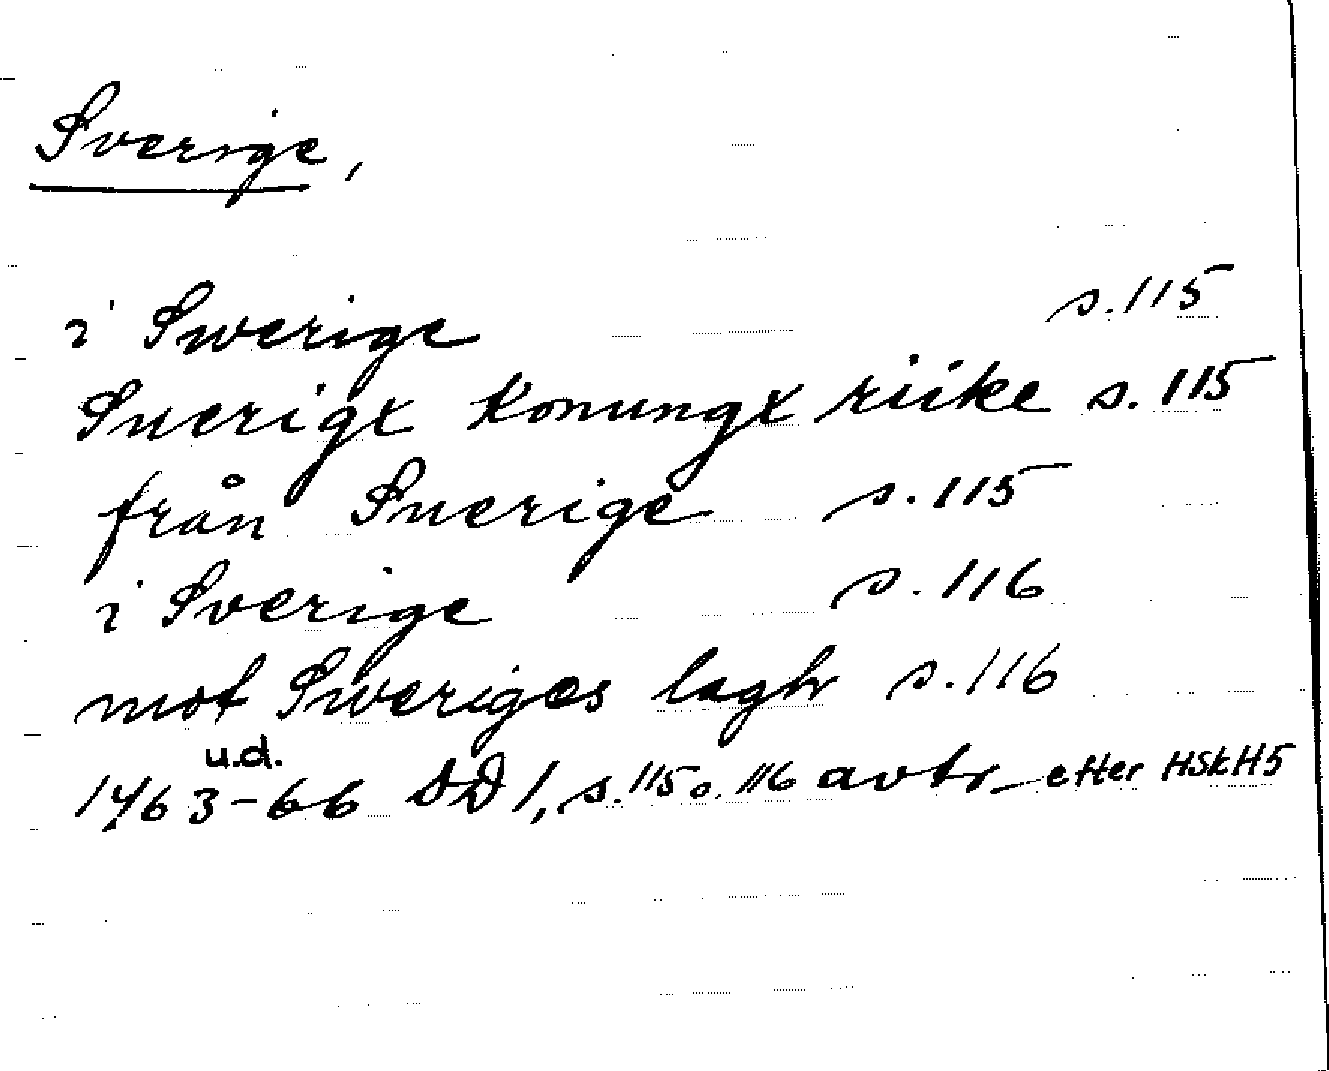 Sverige,
i Swerige s.115
Suerigx konungx riike s. 115
från Suerige s.115
i Sverige s.116
mot Sweriges lagh s.116
u.d.
1463-66 DD 1, s.115 o. 116 avtr. efter HSkH5